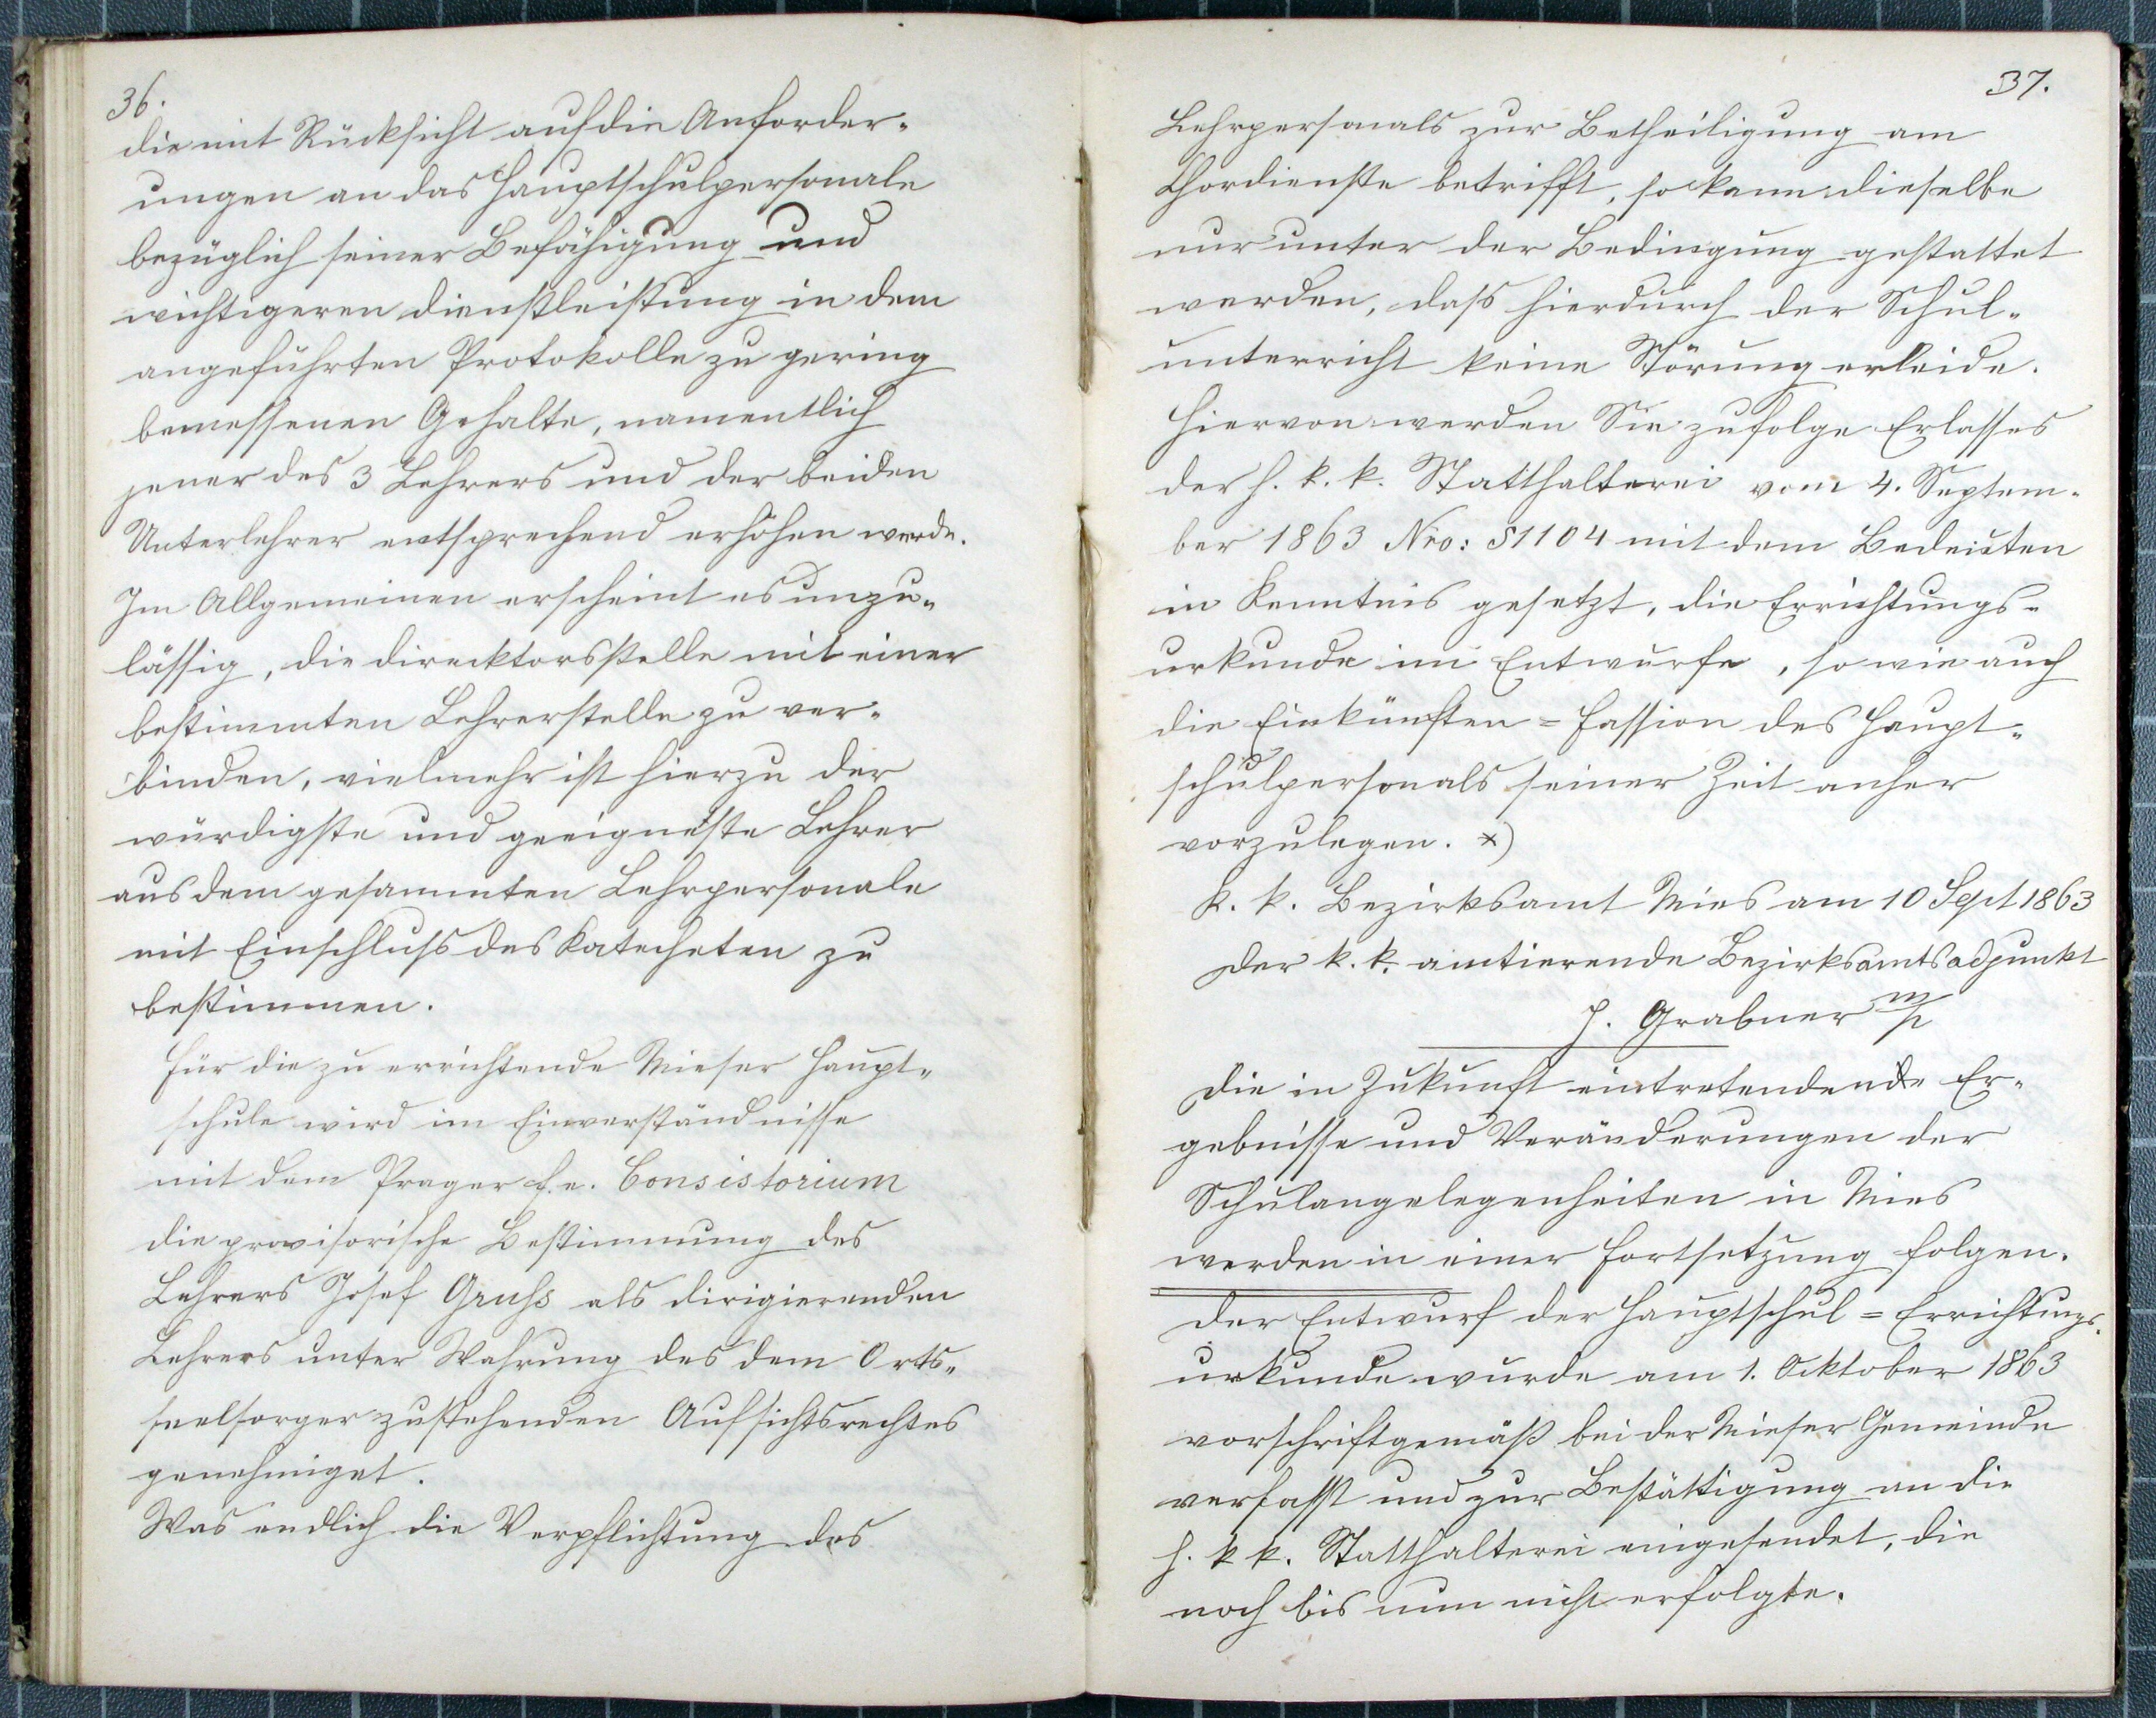 36.
die mit Rücksicht auf die Anforder-
ungen an das Hauptschulpersonale
bezüglich seiner Befähigung und
wichtigeren Dienstleistung in dem
angeführten Protokolle zu gering
bemessenen Gehalte, namentlich
jener des 3 Lehrers und der beiden
Unterlehrer entsprechend erhöhen werde.
Im Allgemeinen erscheint es unzu-
lässig, die Direcktorsstelle mit einer
bestimmten Lehrerstelle zu ver-
binden, vielmehr ist hierzu der
würdigste und geeigneteste Lehrer
aus dem gesammten Lehrpersonale
mit Einschluß des Katecheten zu
bestimmen.
Für die zu errichtende Mieser Haupt-
schule wird im Einverständnisse
mit dem Prager f. e. Consistorium
die provisorische Bestimmung des
Lehrers Josef Gruß als dirigierenden
Lehrers unter Wahrung des dem Orts-
seelsorger zustehenden Aufsichtsrechtes
genehmiget.
Was endlich die Verpflichtung des
37.
Lehrpersonals zur Betheiligung am
Chordienste betrifft, so kann dieselbe
nur unter der Bedingung gestattet
werden, daß hierdurch der Schul-
unterricht keine Störung erleide.
Hiervon werden Sie zufolge Erlasses
der h. k. k. Statthalterei vom 4. Septem-
ber 1863 Nro: 51104 mit dem Bedeuten
in Kenntnis gesetzt, die Errichtungs-
urkunde im Entwurfe, so wie auch
die Einkünften = Fassion des Haupt-
schulpersonals seiner Zeit anher
vorzulegen. *)
K. k. Bezirksamt Mies am 10 Sept 1863
Der k. k. amtierende Bezirksamtsadjunkt
J. Grabner m/p
Die in Zukunft eintretendende Er-
gebnisse und Veränderungen der
Schulangelegenheiten in Mies
werden in einer Fortsetzung folgen.
Der Entwurf der Hauptschul = Errichtungs-
urkunde wurde am 1. Ocktober 1863
vorschriftgemäß bei der Mieser Gemeinde
verfasst und zur Bestättigung an die
h. k k. Statthalterei eingesendet, die
noch bis nun nicht erfolgte.